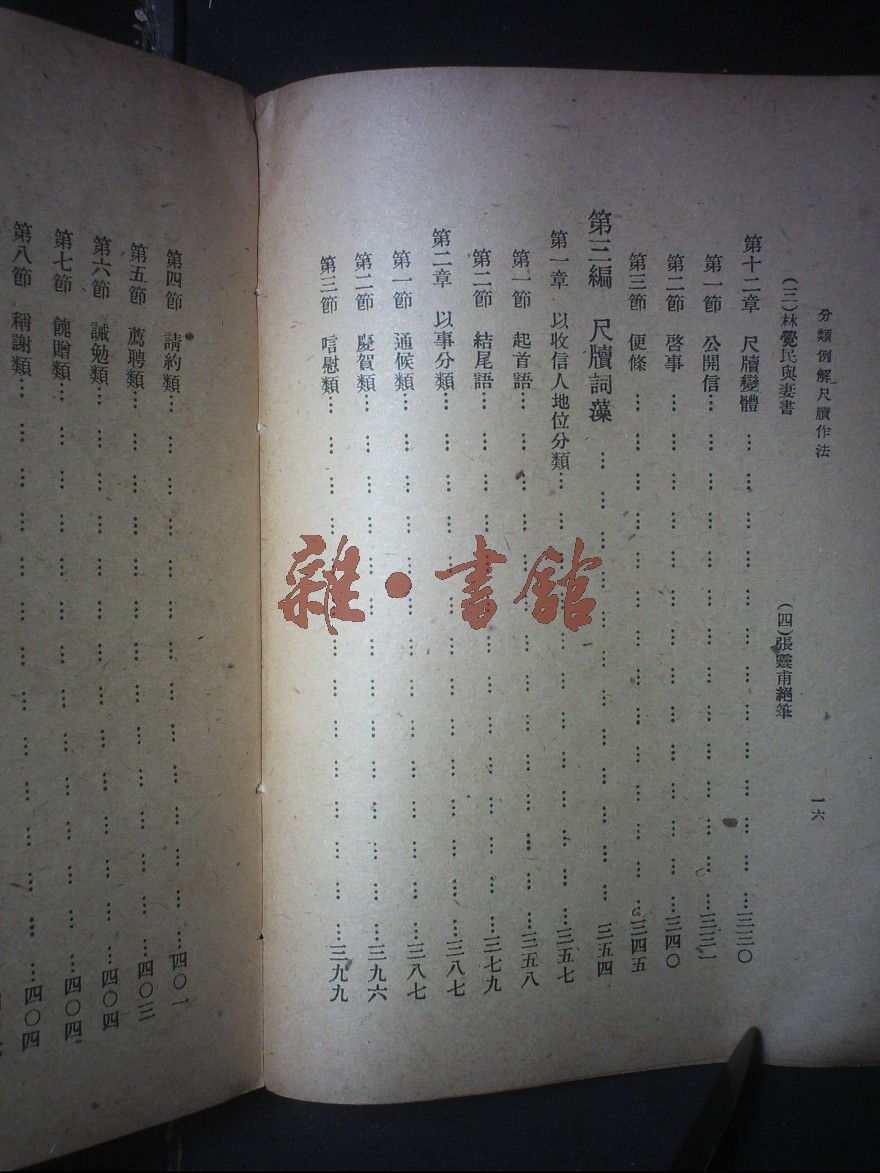 分類例解尺牘作法 一六
(三)林覺民與妻書 (四)張靈甫絕筆
第十二章 尺牘變體……三三〇
第一節 公開信……三三一
第二節 啓事……三四〇
第三節 便條……三四五
第三編 尺牘詞藻……三五四
第一章 以收信人地位分類……三五七
第一節 起首語……三五八
第二節 結尾語……三七九
第二章 以事分類……三八七
第一節 通候類……三八七
第二節 慶賀類……三九六
第三節 唁慰類……三九九
第四節 請約類……四〇一
第五節 薦聘類……四〇三
第六節 誡勉類……四〇四
第七節 餽贈類……四〇四
第八節 稱謝類……四〇四
雜·書館